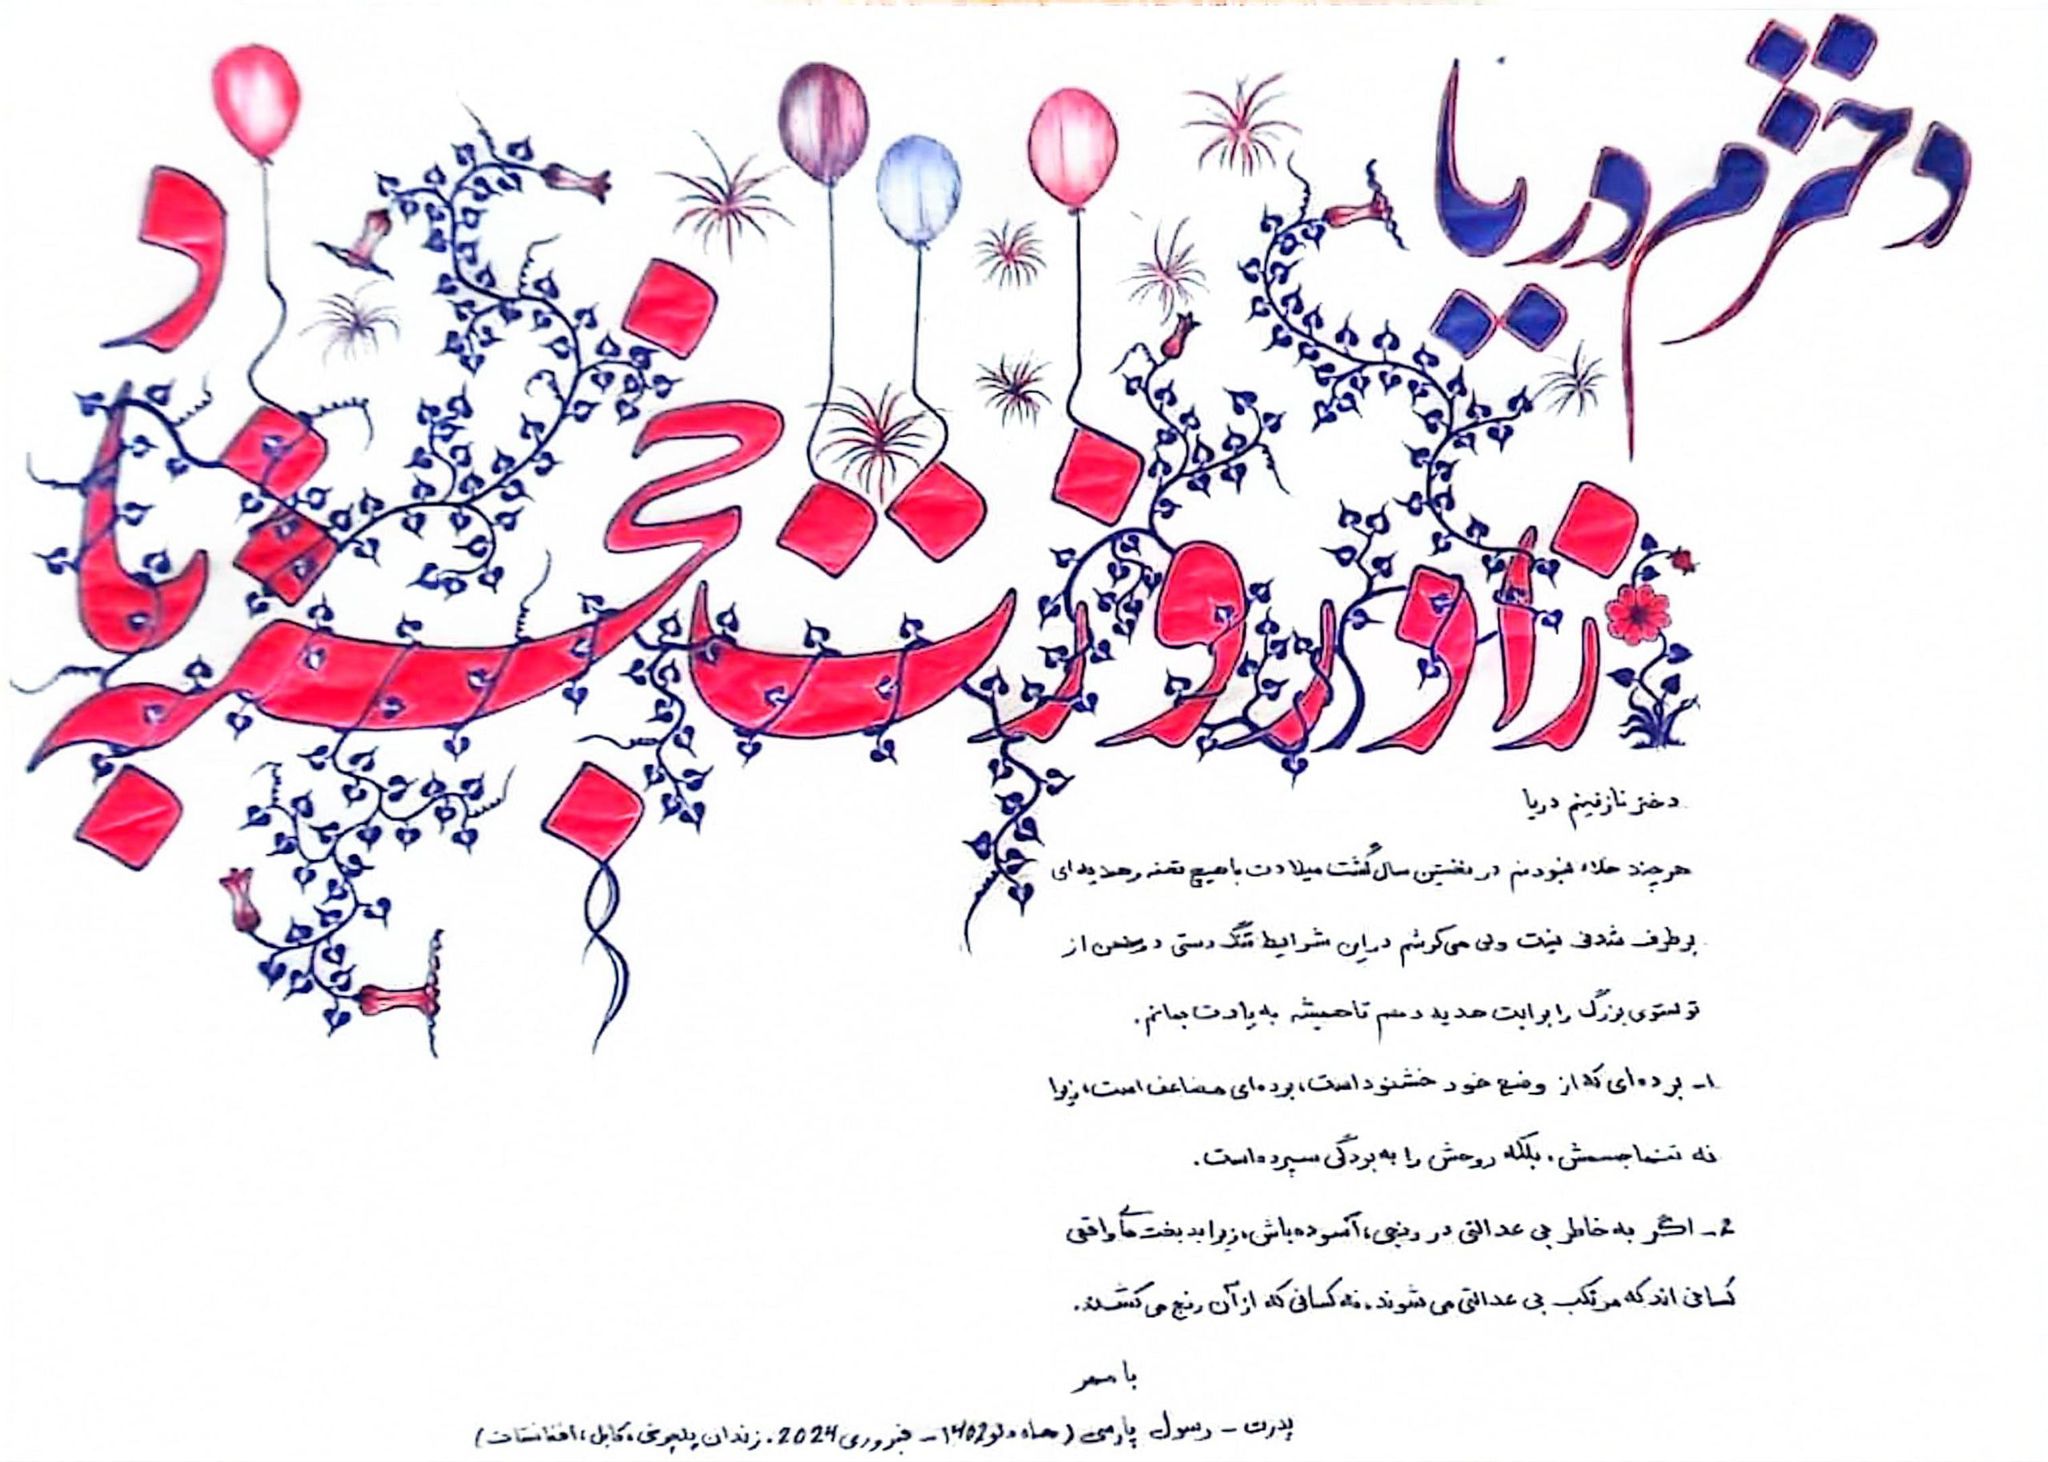 دخترم دریا
زادروزت خجسته باد
دختر نازنینم دریا
هر چند خلاء نبودنم در نخستین سال‌گشت میلادت با هیچ تحفه و هدیه‌ای
برطرف شدنی نیست ولی می‌کوشم در این شرایط تنگ‌دستی دو سخن از
تولستوی بزرگ را برایت هدیه دهم تا همیشه به یادت بمانم.
۱- برده‌ای که از وضع خود خشنود است، برده‌ای مضاعف است، زیرا
نه تنها جسمش، بلکه روحش را به بردگی سپرده است.
۲- اگر به خاطر بی عدالتی در رنجی، آسوده باش، زیرا بدبخت‌های واقعی
کسانی اند که مرتکب بی عدالتی می شوند، نه کسانی که از آن رنج می کشند.
با مهر
پدرت - رسول پارسی (ماه دلو 1402 - فبروری 2024. زندان پلچرخی، کابل، افغانستان)